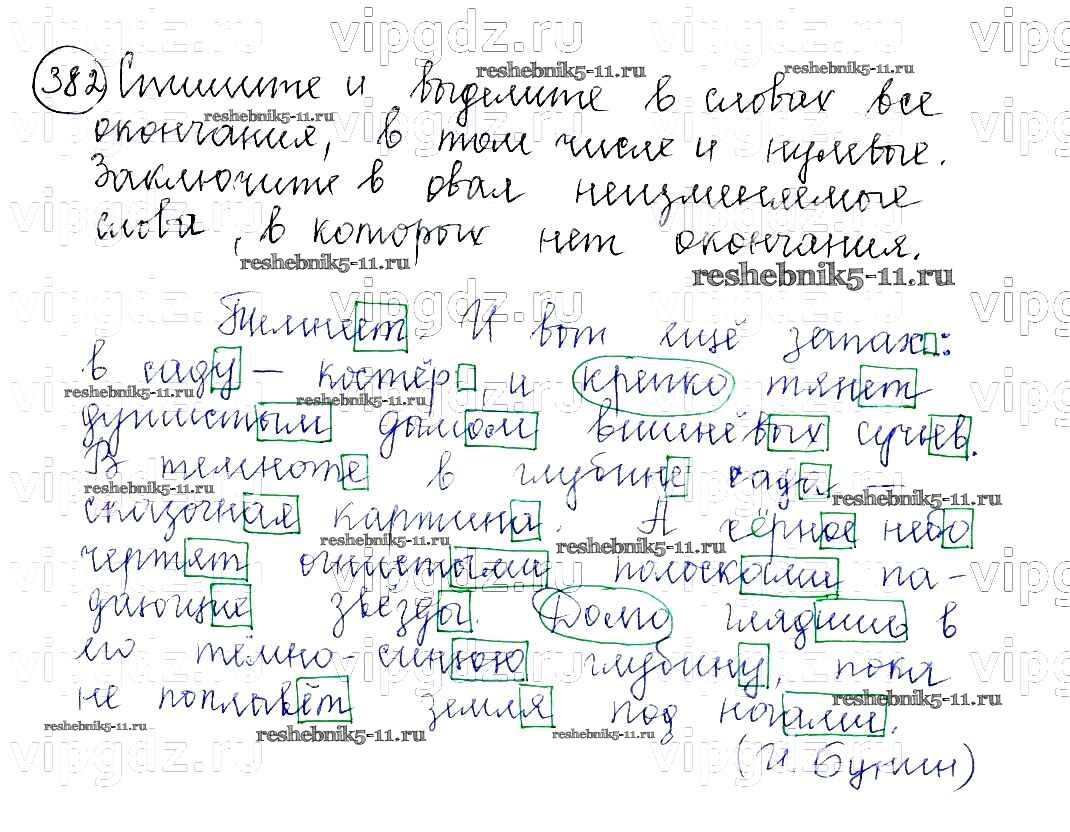 382 Спишите и выделите в словах все
окончания, в том числе и нулевые.
Заключите в овал неизменяемые
слова, в которых нет окончания.
Темнеет. И вот ещё запах:
в саду — костёр, и крепко тянет
душистым дымом вишнёвых сучьев.
В темноте в глубине сада —
сказочная картина. А чёрное небо
чертят огнистыми полосками па-
дающие звёзды. Долго глядишь в
его тёмно-синюю глубину, пока
не поплывёт земля под ногами.
(И. Бунин)
vipgdz.ru
reshebnik5-11.ru